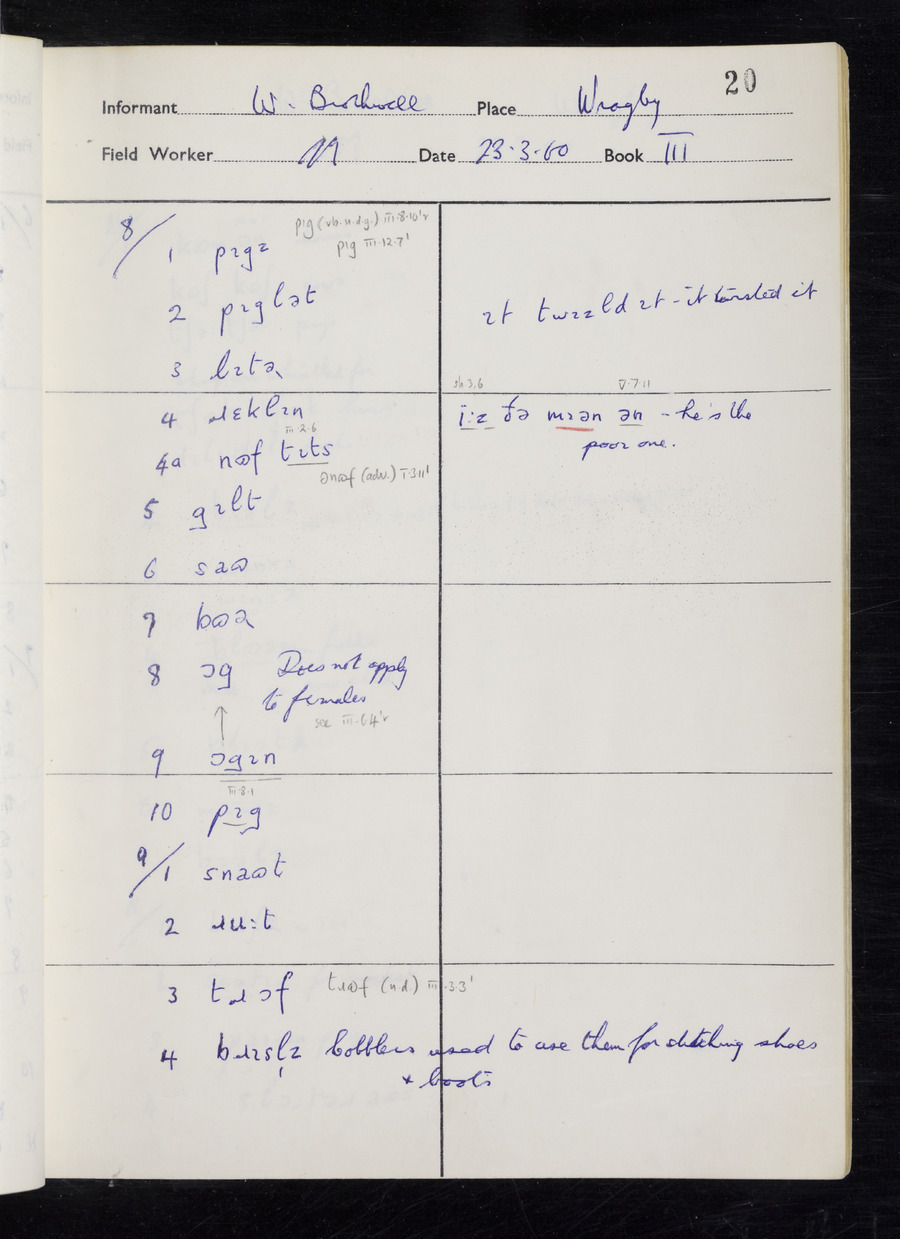 20
Informant W. Brothwell Place Wragby
Field Worker Date 23.3.60 Book III
8/ pɪg (vb.n.d.g.) III.8.10'r
1 pɪgz pɪg III.12.7'
2 pɪglət ɪt twɪzld ɪt - it twisted it
3 lɪtə
3,6 V.7.11
4 ɹɛklɪn i:z ðə mɪən ən - he's the
III.2.6 poor one.
4a nɷf tɪts
ənɷf (adv.) I.3.11'
5 gɪlt
6 saɷ
7 bɷə
8 ɔg Does not apply
to females
see III.6.4'r
↑
9 ɔgɪn
III.8.1
10 pɪg
9/1 snaɷt
2 ɹu:t
3 tɹɔf tɹɷf (n.d) III.3.3'
4 bɹɪslz cobblers used to use them for stitching shoes
+ boots